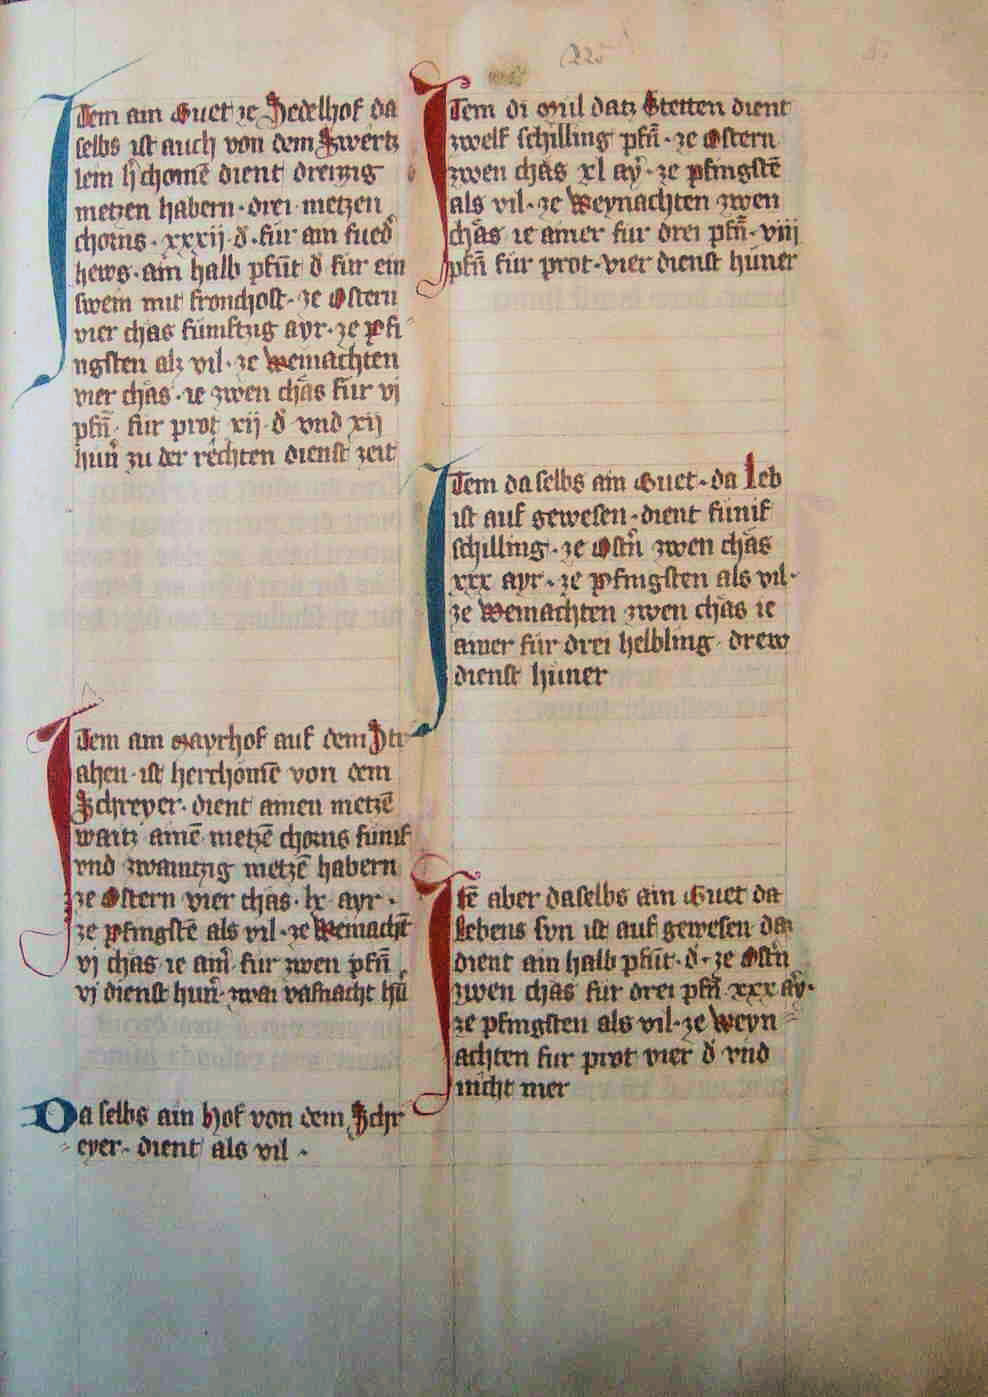 225
Item ain Guet ze Hedelhof da
selbs ist auch von dem Swertz
lem h᷑chomē dient dreizig
metzen habern · drei metzen
chorns · xxxij · d̄ · fur ain fued᷑
hews · ain halb pfūt d̄ fur ein
swein mit fronchost · ze Ostern
vier chas fumftzig ayr · ze pfi
ngsten alz vil · ze Weinachten
vier chaͤs · ie zwen chaͤs fur vj
pfn̄ · fur prot xij · d̄ vnd xij
hun᷑ zu der rechten dienst zeit
Item ain Mayrhof auf dem Str
ahen · ist herchomē von dem
Schreyer · dient ainen metzē
waitz ainē metzē chorns funif
vnd zwaintzig metzē habern
ze Ostern vier chas · lx · ayr ·
ze pfingstē als vil · ze Weinacht̄
vj chas · ie ain᷑ · fur zwen pfn̄
vj dienst hun᷑ · zwai vasnacht hū
Da selbs ain hof von dem Schr
eyer · dient als vil ·
Item di Mul datz Stetten dient
zwelf schilling pfn̄ · ze Ostern
zwen chas xl ay᷑ · ze pfingstē
als vil · ze Weynachten zwen
chaͤs ie ainer fur drei pfn̄ · viij
pfn̄ fur prot · vier dienst huner
Item daselbs ain Guet · da Leb
ist auf gewesen · dient funif
schilling · ze Ostn᷑ zwen chaͤs
xxx ayr · ze pfingsten als vil ·
ze Weinachten zwen chas ie
ainer fur drei helbling · drew
dienst huner
Itē aber daselbs ain Guet da
Lebens sun ist auf gewesen daz
dient ain halb pfūt · d̄ · ze Ostn᷑
zwen chas fur drei pfn̄ · xxx ay᷑ ·
ze pfingsten als vil · ze Weyn
achten fur prot vier d̄ vnd
nicht mer